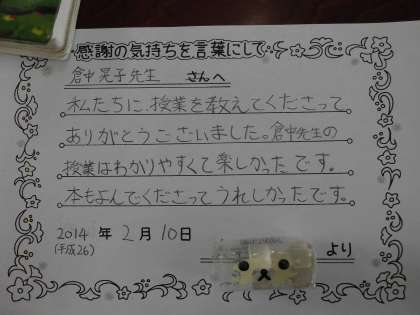 感謝の気持ちを言葉にして
倉中晃子先生 さんへ
私たちに、授業を教えてくださって
ありがとうございました。倉中先生の
授業はわかりやすくて楽しかったです。
本もよんでくださってうれしかったです。
2014 年 2 月 10 日
(平成26)
より